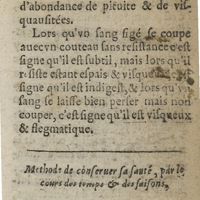 d'abondance de pituite & de vis-
quausitées.
Lors qu'vn sang figé se coupe
auec vn couteau sans resistance c'est
signe qu'il est subtil, mais lors qu'il
resiste estant espais & visque
signe qu'il est indigest, & lors qu'vn
sang se laisse bien perser mais non
couper, c'est signe qu'il est visqueux
& flegmatique.
Methode de conseruer sa santé, par le
cours des temps & des saisons,